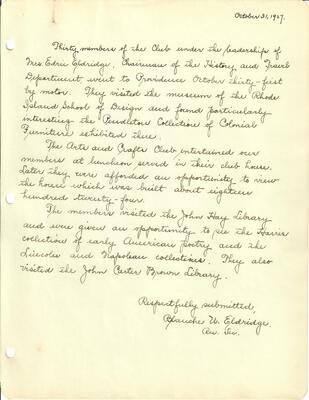 October 31, 1927.
Thirty members of the Club under the leadership of
Mrs. Edric Eldridge, Chairman of the History and Travel
Department went to Providence October thirty-first
by motor. They visited the museum of the Rhode
Island School of Design and found particularly
interesting the Pendleton Collection of Colonial
Furniture exhibited there.
The Arts and Crafts Club entertained our
members at luncheon served in their club house.
Later they were afforded an opportunity to view
the house which was built about eighteen
hundred twenty-four.
The members visited the John Hay Library
and were given an opportunity to see the Harris
collection of early American poetry and the
Lincoln and Napoleon collections. They also
visited the John Carter Brown Library.
Respectfully submitted,
Blanche W. Eldridge.
Rec. Sec.